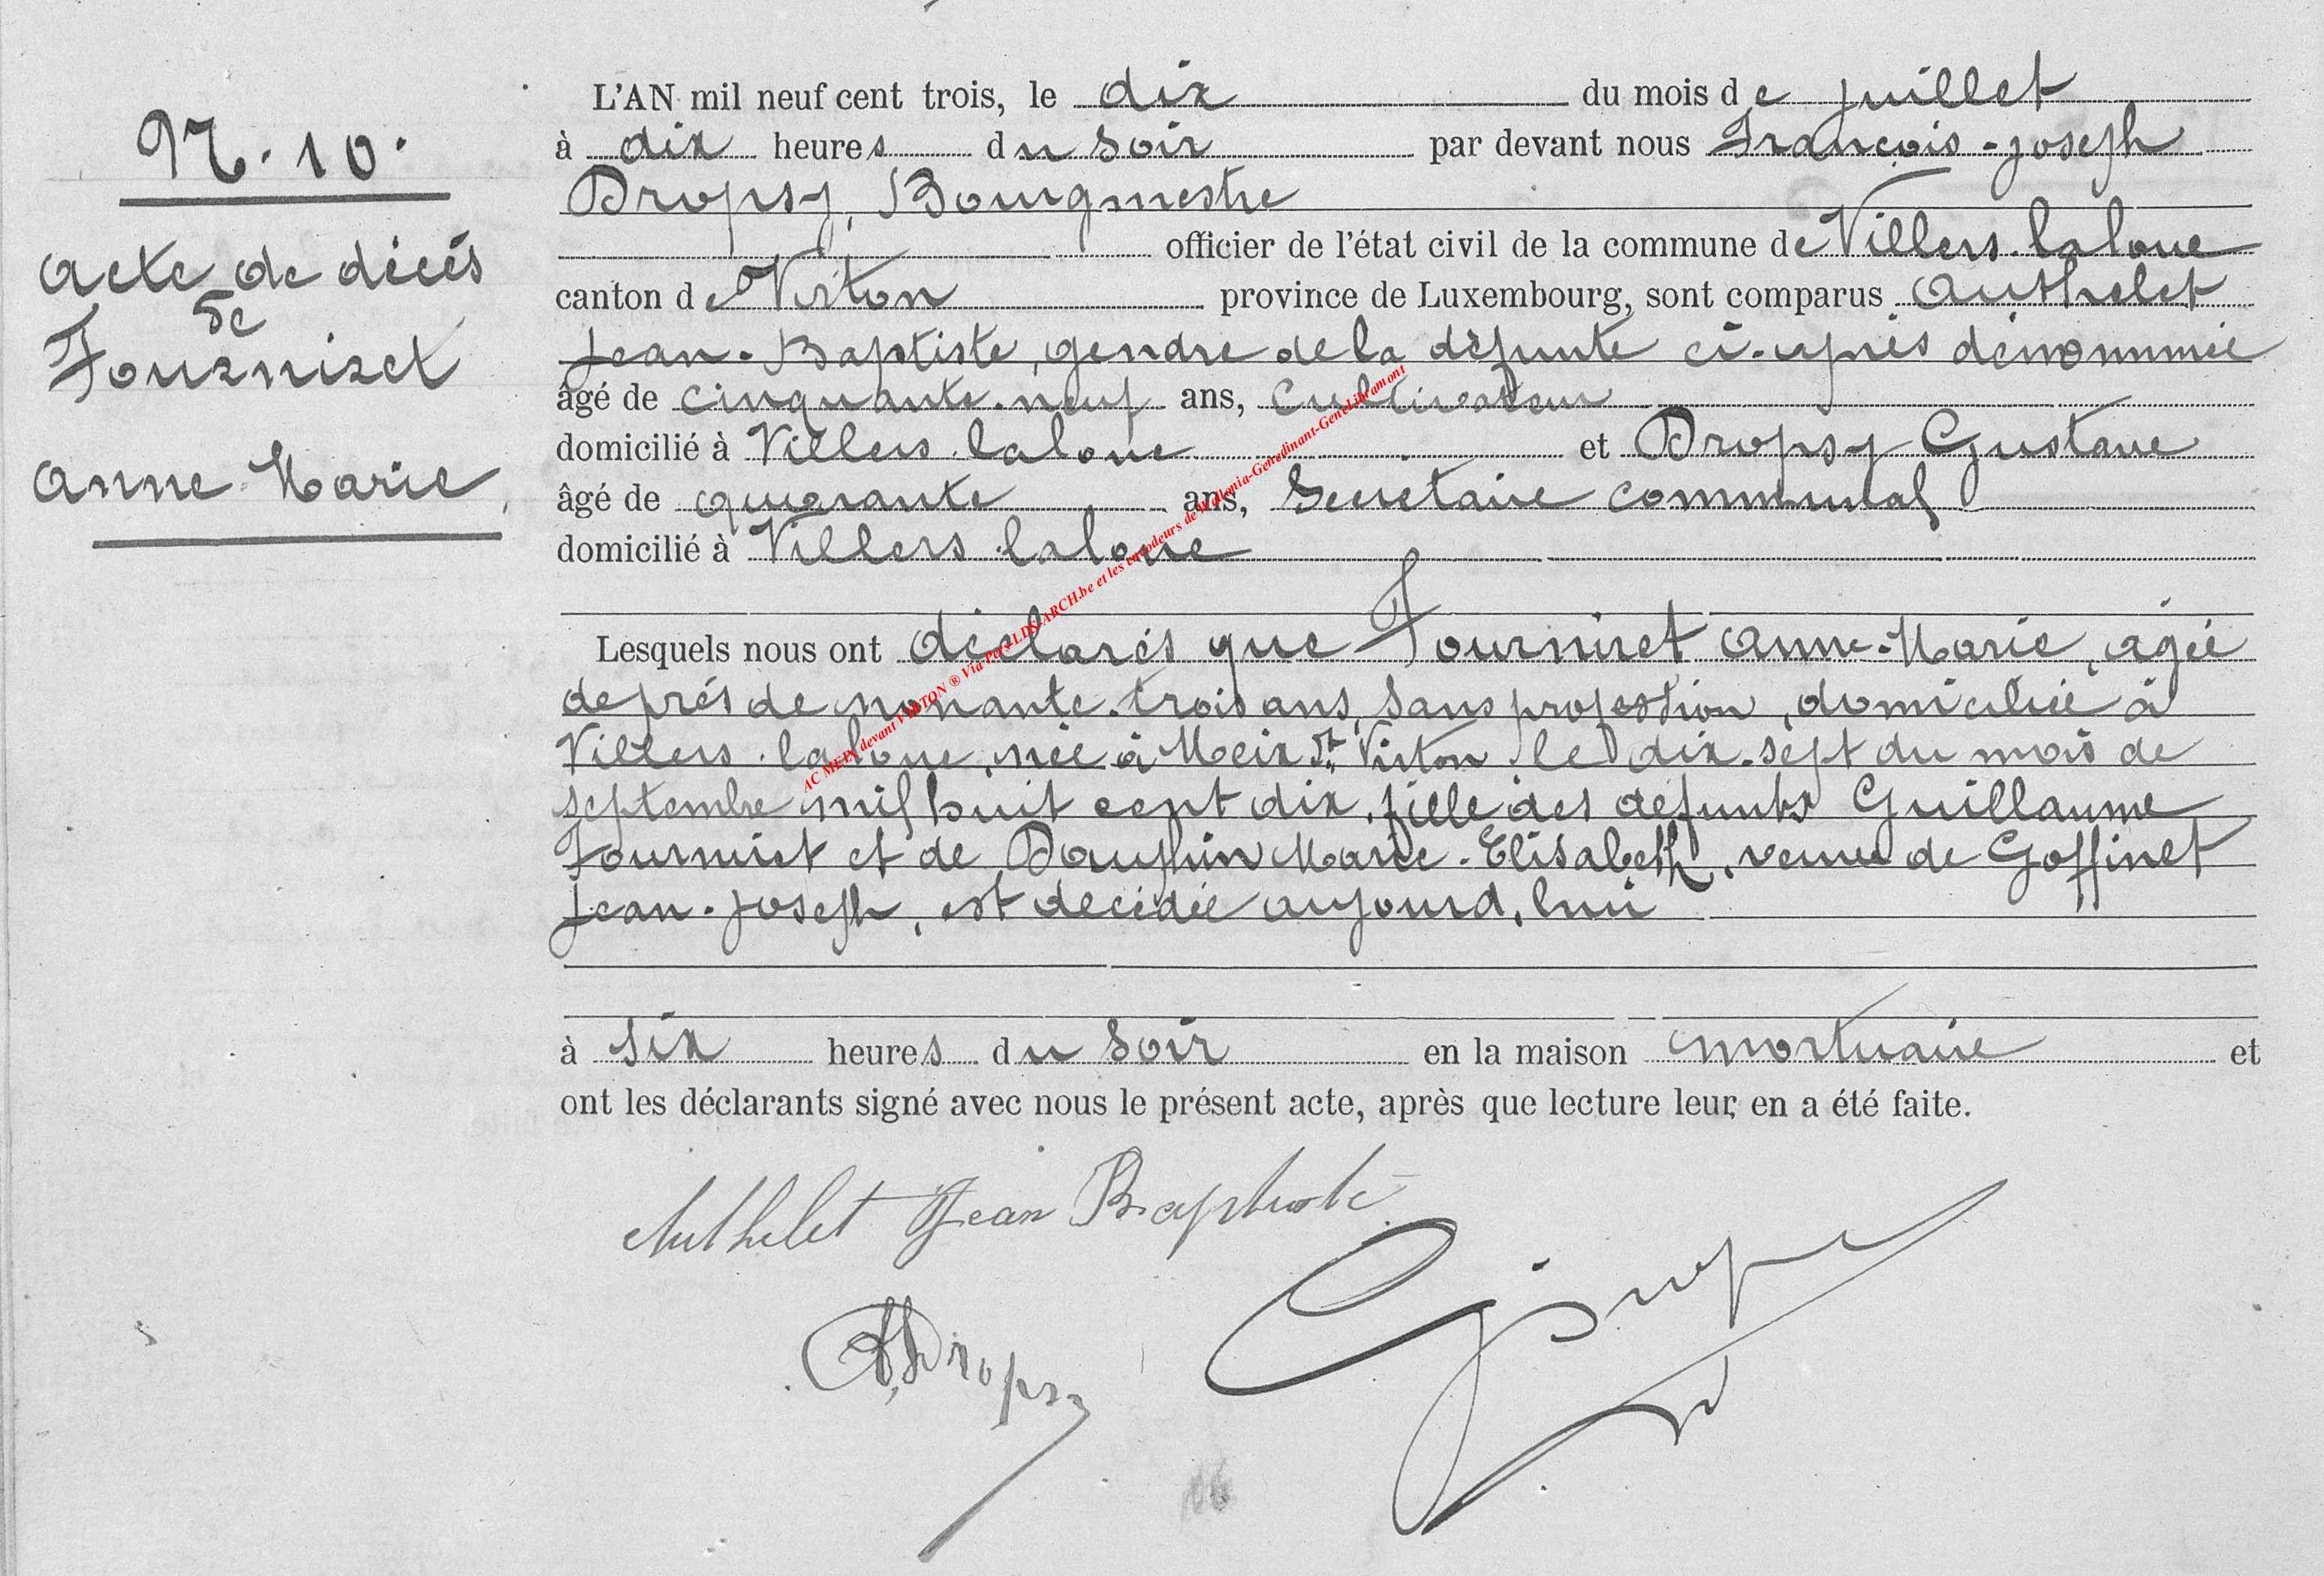 N. 10.
Acte de décès
de
Fourniret
Anne-Marie
L'AN mil neuf cent trois, le dix du mois de juillet
à dix heures du soir par devant nous François-Joseph
Dropsy, Bourgmestre
officier de l'état civil de la commune de Villers-laloue
canton de Virton province de Luxembourg, sont comparus Authelet
Jean-Baptiste, gendre de la défunte ci-après dénommée
âgé de cinquante-neuf ans, Cultivateur
domicilié à Villers laloue et Dropsy Gustave
âgé de quarante ans, Secretaire communal
domicilié à Villers-laloue
Lesquels nous ont déclarés que Fourniret Anne-Marie, agée
de prés de nonante-trois ans, sans profession, domiciliée à
Villers-laloue, née à Meix dt Virton le dix-sept du mois de
septembre mil huit cent dix, fille des défunts Guillaume
Fourniret et de Dauphin Marie-Elisabeth, veuve de Goffinet
Jean-Joseph, est décédée aujourd'hui
à six heures du soir en la maison mortuaire et
ont les déclarants signé avec nous le présent acte, après que lecture leur en a été faite.
Authelet Jean Baptiste
Dropsy
AC MEIX devant VIRTON ® Via Pers-LDS-ARCH.be et les encodeurs de Wallonia-Genedinant-GeneLibramont